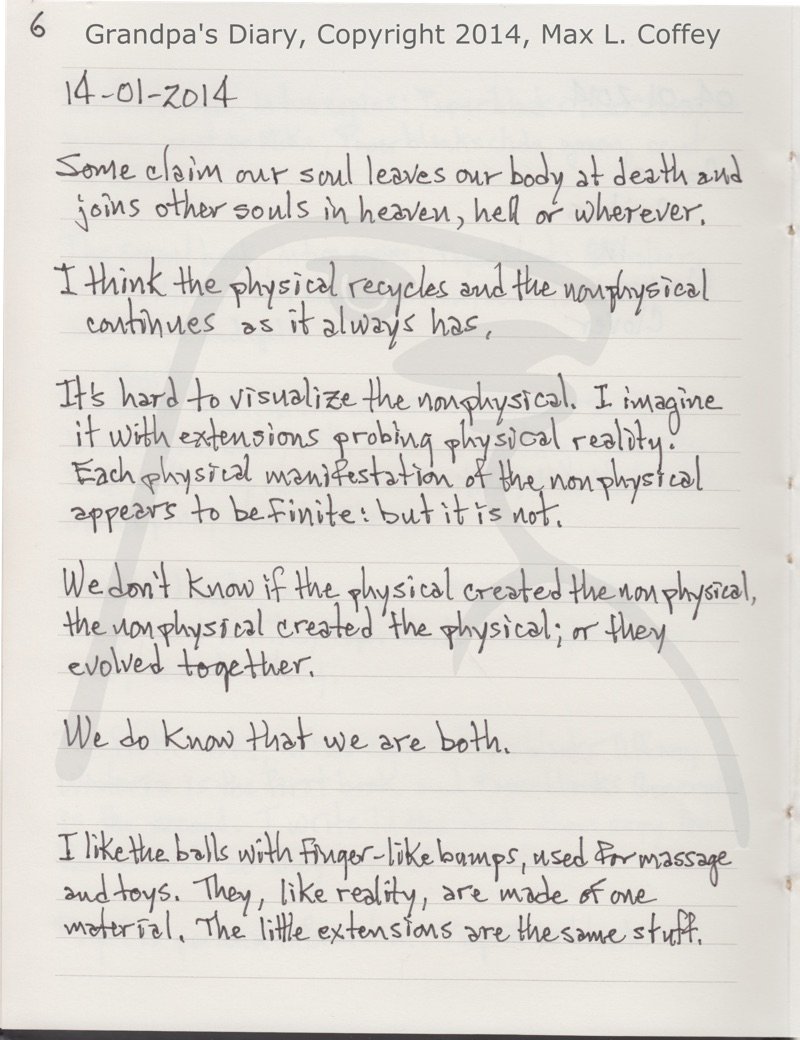 6
Grandpa's Diary, Copyright 2014, Max L. Coffey
14-01-2014
Some claim our soul leaves our body at death and
joins other souls in heaven, hell or wherever.
I think the physical recycles and the nonphysical
continues as it always has.
It's hard to visualize the nonphysical. I imagine
it with extensions probing physical reality.
Each physical manifestation of the nonphysical
appears to be finite: but it is not.
We don't know if the physical created the nonphysical,
the nonphysical created the physical; or they
evolved together.
We do know that we are both.
I like the balls with finger-like bumps, used for massage
and toys. They, like reality, are made of one
material. The little extensions are the same stuff.